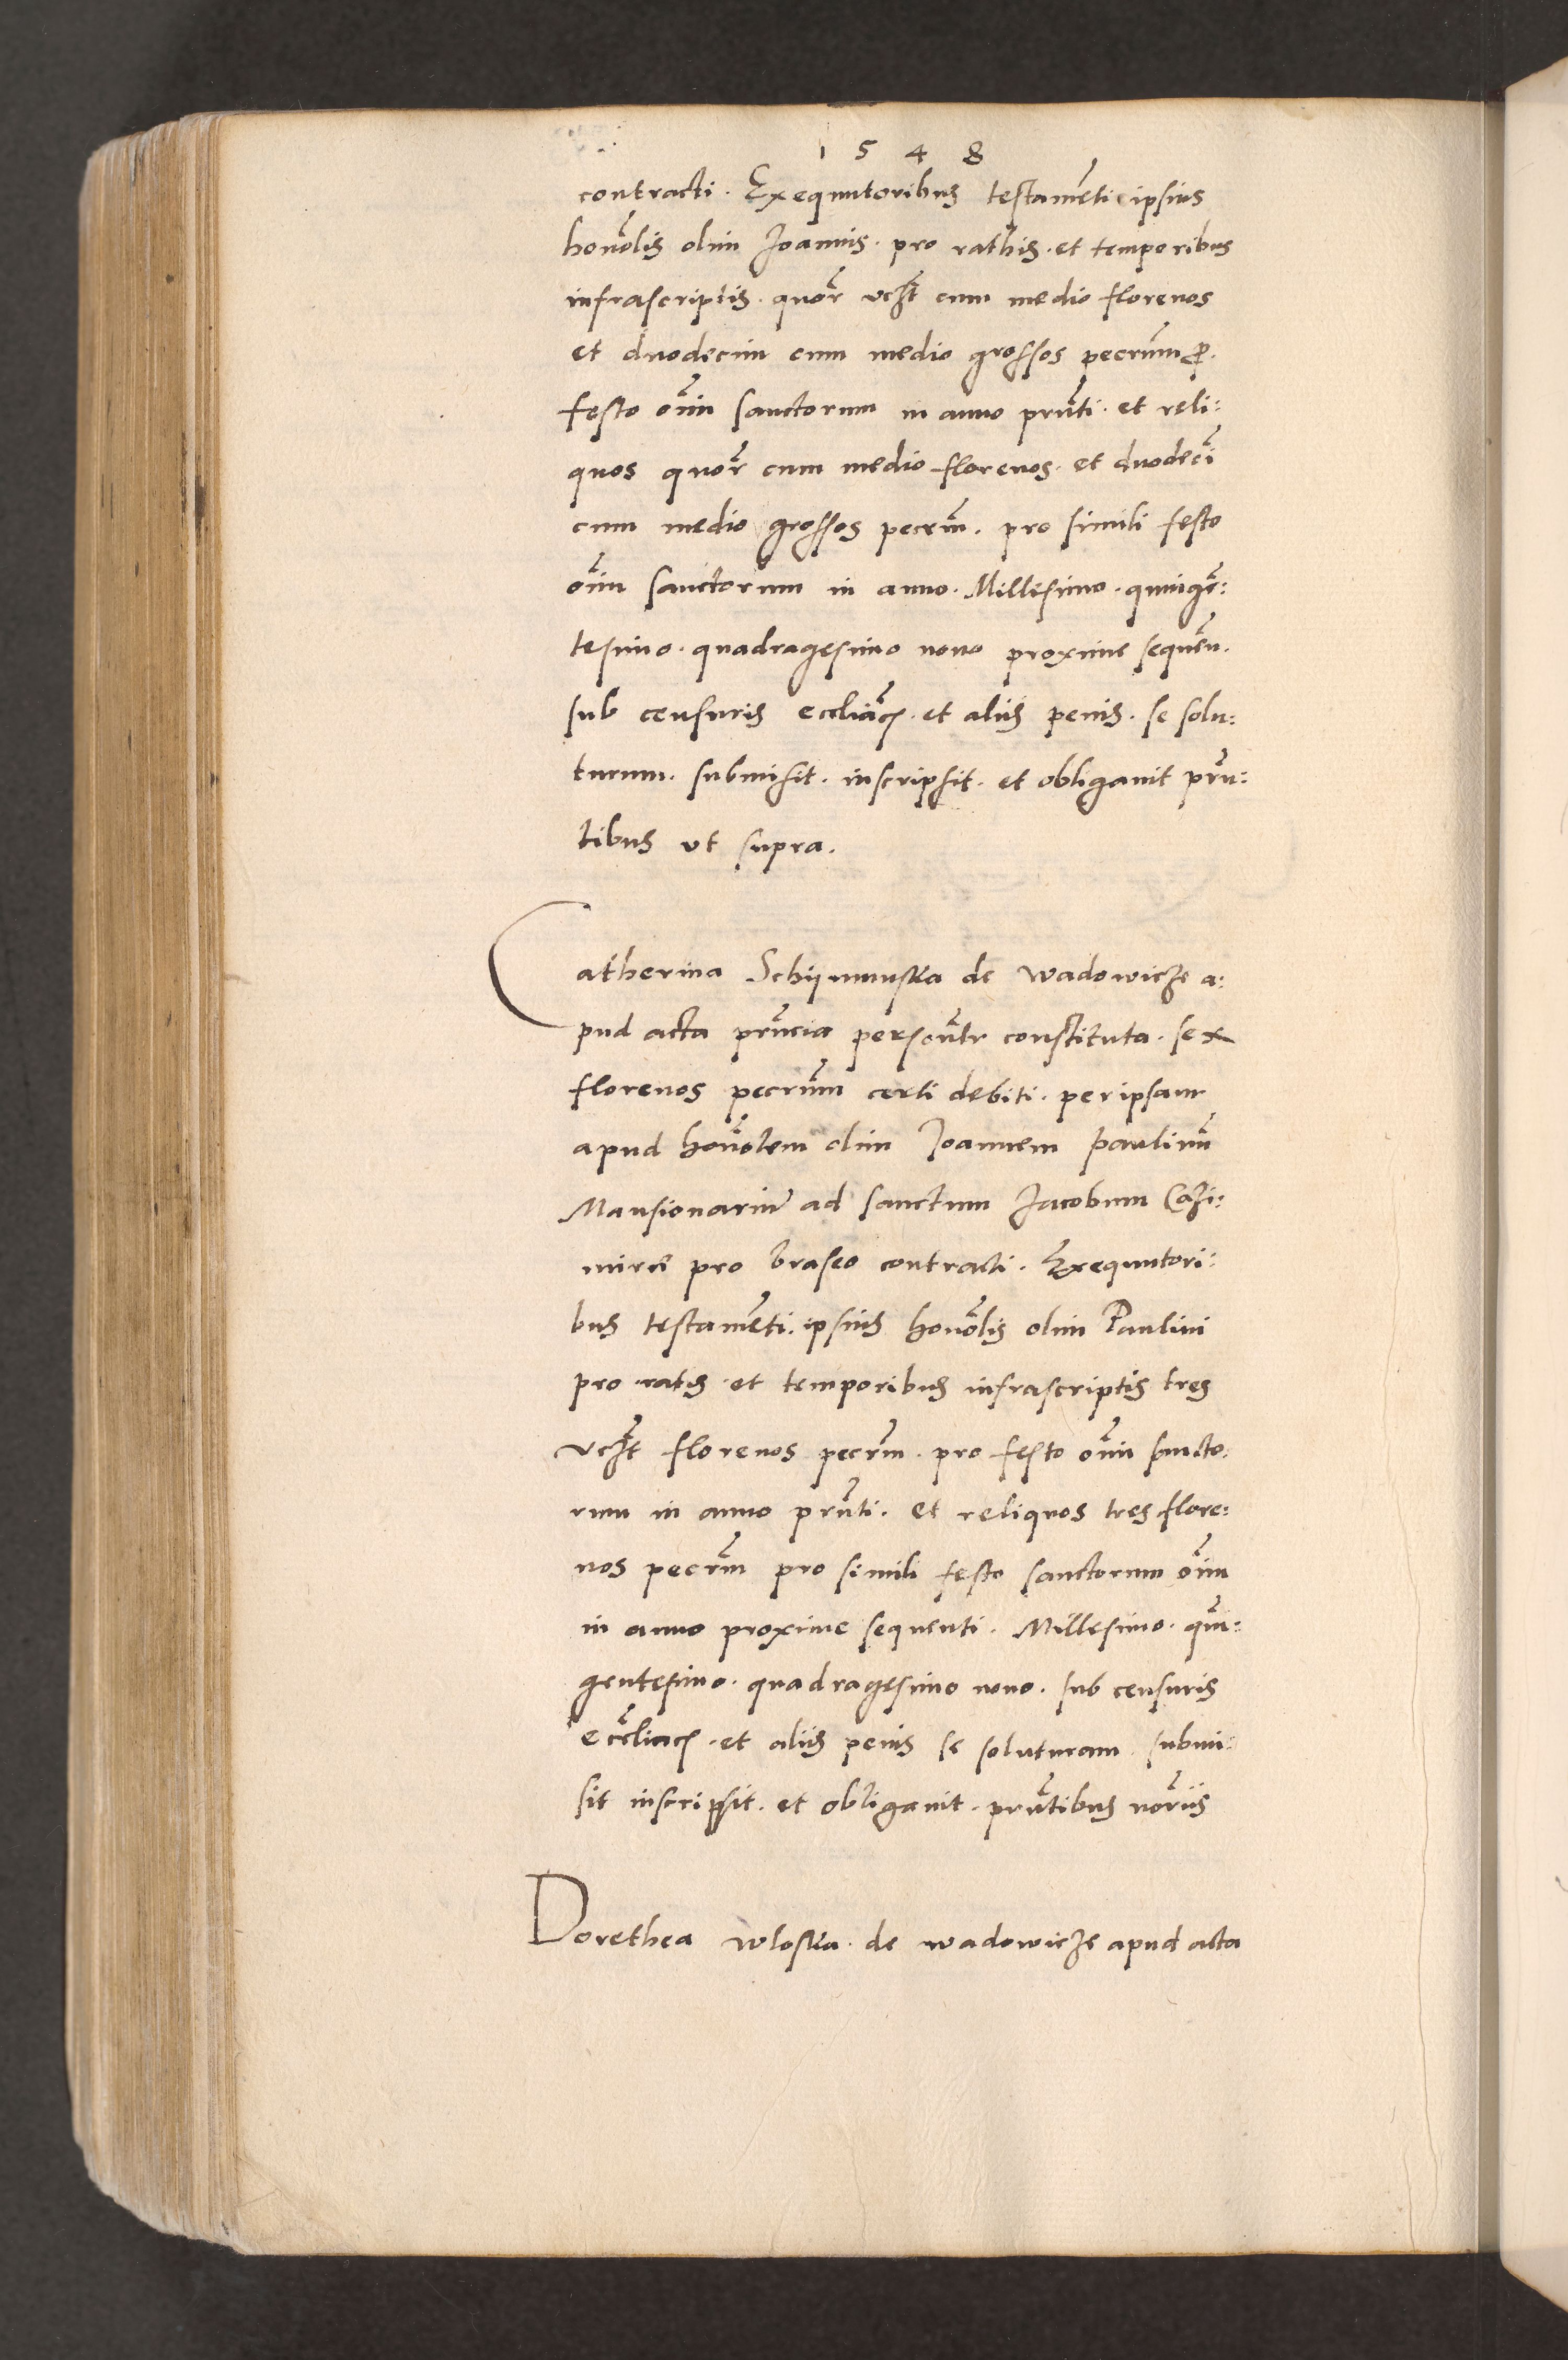 1 5 4 8
contracti. Exequutoribus testame͂ti ipsius
hono͂lis olim Joannis. pro rathis. et temporibus
infrascriptis. quor͂ vcz͂t cum medio florenos
et duodecim cum medio grossos pecun͂m ꝓ.
festo o͂im sanctorum in anno prn͂ti. et reli:
quos quor͂ cum medio florenos. et duodeci͂
cum medio grossos pecn͂m. pro simili festo
o͂im sanctorum in anno. Millesimo. quinge͂:
tesimo. quadragesimo nono proxime seque͂n.
sub censuris ecclia͂cis. et aliis penis. se solu:
turum. submisit. inscripsit. et obligauit prn͂:
tibus vt supra.
Catherina Schijmunska de wadowicze a:
pud acta prn͂cia perso͂nlr constituta. sex
florenos pecun͂m certi debiti. per ipsam
apud hono͂lem olim Joannem paulinu͂
Mansionariu͂ ad sanctum Jacobum Cazi:
mirie͂ pro braseo contracti. Exequutori:
bus testame͂ti. ipsius hono͂lis olim Paulini
pro ratis. et temporibus infrascriptis tres
vcz͂t florenos pecn͂m. pro festo o͂im sancto:
rum in anno prn͂ti. et reliquos tres flore:
nos pecn͂m pro simili festo sanctorum o͂im
in anno proxime sequenti. Millesimo. qui͂:
gentesimo. quadragesimo nono. sub censuris
eccl͂iacis. et aliis penis se soluturam. submi:
sit inscripsit. et obligauit. prn͂tibus nor͂iis
Dorethea wloska. de wadowicze apud acta